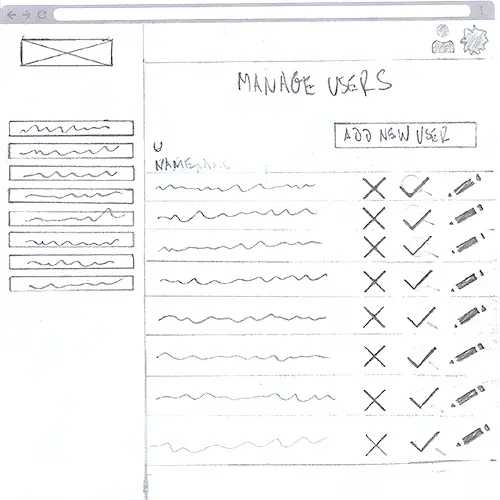 MANAGE USERS
ADD NEW USER
U
NAME